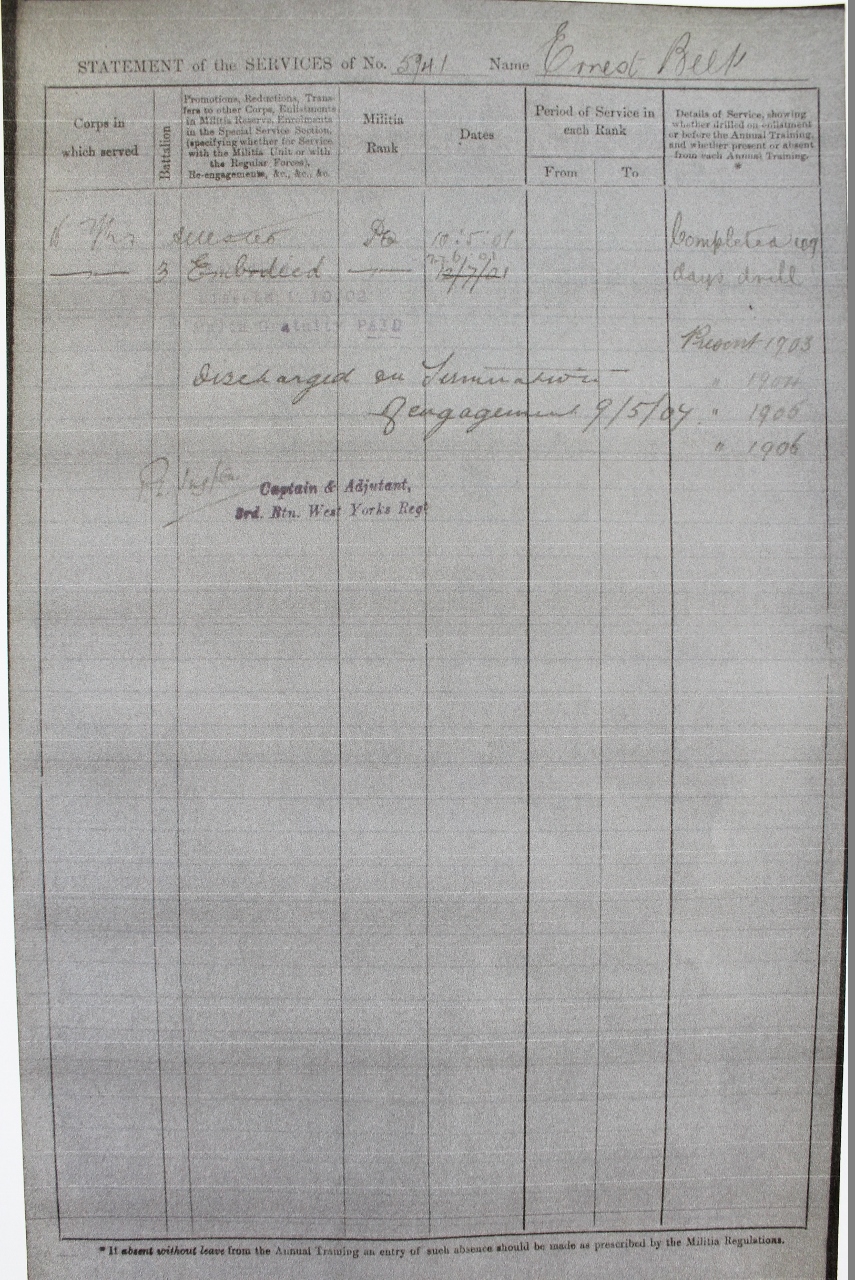 STATEMENT of the SERVICES of No. 5941 Name Ernest Belk
Corps in
which served
Battalion
Promotions, Reductions, Trans-
fers to other Corps, Enlistments
in Militia Reserve, Enrolments
in the Special Service Section,
(specifying whether for Service
with the Militia Unit or with
the Regular Forces),
Re-engagements, &c., &c., &c.
Militia
Rank
Dates
Period of Service in
each Rank
From To
Details of Service, showing
whether drilled on enlistment
or before the Annual Training,
and whether present or absent
from each Annual Training.
*
Attested Pte 10:5:01 Completed
3 Embodied days drill
PAID
Present 1903
Discharged on Termination " 1904
of engagement 9/5/07 " 1905
" 1906
Captain & Adjutant,
3rd. Btn. West Yorks Regt
* If absent without leave from the Annual Training an entry of such absence should be made as prescribed by the Militia Regulations.